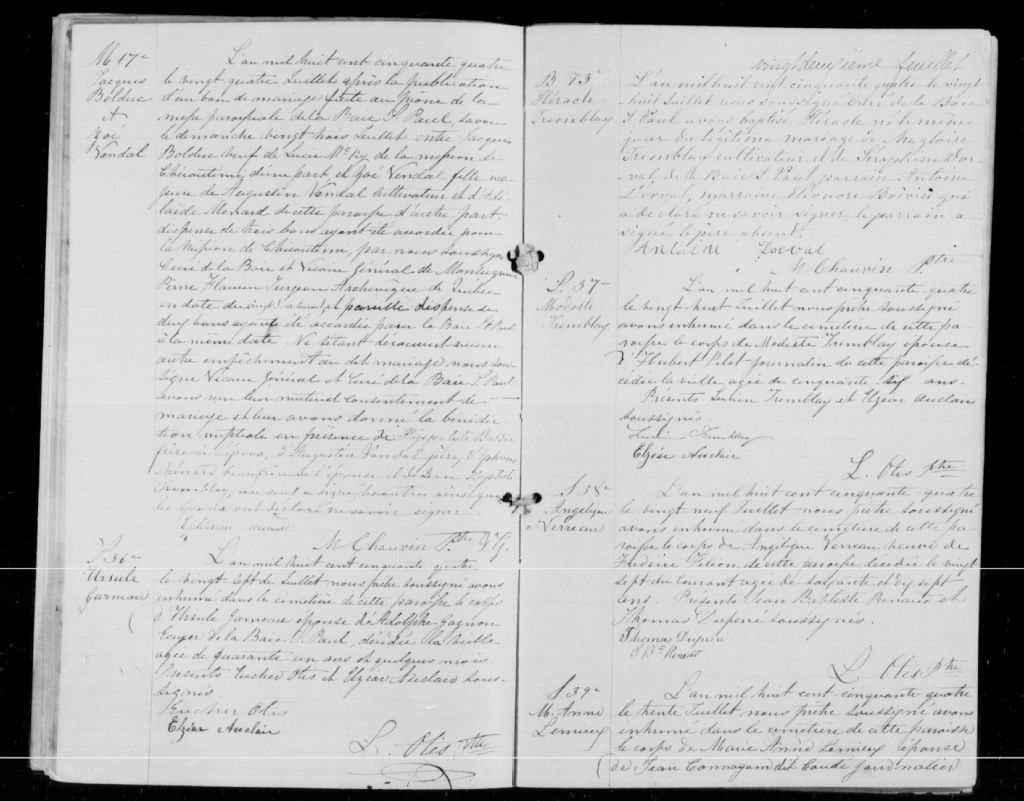 M 17e
Jacques
Bolduc
et
Zoé
Vandal
L'an mil huit cent cinquante quatre
le vingt quatre Juillet après la publication
d'un ban de mariage faite au prône de la
messe paroissiale de la Baie St Paul, savoir
le dimanche vingt trois Juillet entre Jacques
Bolduc veuf de Lucie de la mission de
Chicoutimi d'une part, et Zoé Vandal fille ma-
jeure de Augustin Vandal cultivateur et d'Adé-
laïde Menard de cette paroisse d'autre part
dispense de trois bans ayant été accordée pour
la mission de Chicoutimi, par nous soussigné
Curé de la Baie et Vicaire Général de Monseigneur
Pierre Flavien Turgeon Archevêque de Québec
en date du et pareille dispense de
deux bans ayant été accordée pour la Baie St Paul
à la même date, Ne s'étant découvert aucun
autre empêchement au dit mariage nous sou-
signé Vicaire Général et Curé de la Baie St Paul
avons reçu leur mutuel consentement de
mariage et leur avons donné la bénédic-
tion nuptiale en présence de Hippolite Bolduc
frère de l'époux, d'Augustin Vandal père, d'Ephrem
Ménard beaufrère de l'épouse et de Jean Baptiste
Tremblay, un seul a signé, les autres ainsi que
les époux ont déclaré ne savoir signer.
M Chauvin Ptre V G.
S 36e
Ursule
Garneau
L'an mil huit cent cinquante quatre
le vingt sept de Juillet nous prêtre soussigné avons
enhumé dans le cimetière de cette paroisse le corps
d'Ursule Garneau épouse d'Adolphe Gagnon
Ecuyer de la Baie St Paul, décédée la veille
agée de quarante-un ans et quelques mois.
Présents Eucher Otis et Elzéar Auclair sous-
signés.
Eucher Otis
Elzéar Auclair
L. Otis Ptre
vingt deuxième feuillet
B 73e
Héracle
Tremblay
L'an mil huit cent cinquante quatre le vingt
huit Juillet nous soussigné Curé de la Baie
St Paul avons baptisé Héracle né le même
jour du légitime mariage de Magloire
Tremblay cultivateur et de Séraphine D'or-
val, de la Baie St Paul, parrain Antoine
Dorval, marraine Eléonore Boivin qui
a déclaré ne savoir signer, le parrain a
signé le père absent.
Antoine Dorval
M Chauvin Ptre
S. 37
Modeste
Tremblay
L'an mil huit cent cinquante quatre
le vingt-huit Juillet nous prêtre soussigné
avons enhumé dans le cimetière de cette pa-
roisse le corps de Modeste Tremblay épouse
d'Hubert Pilot journalier de cette paroisse dé-
cédée la veille agée de cinquante six ans.
Présents Lucien Tremblay et Elzéar Auclair
soussignés.
Lucien Tremblay
Elzéar Auclair
L. Otis Ptre
S 38e
Angélique
Verreau
L'an mil huit cent cinquante-quatre
le vingt neuf Juillet nous prêtre soussigné
avons enhumé dans le cimetière de cette pa-
roisse le corps de Angélique Verreau veuve de
Frédéric de cette paroisse, décédée le vingt
sept du courant agée de soixante et dix sept
ans. Présents Jean Baptiste Renaud et
Thomas Duperé soussignés.
Thomas Duperé
J Bte Renaud
L. Otis Ptre
S 39e
M. Anne
Lemieux
L'an mil huit cent cinquante quatre
le trente Juillet nous prêtre soussigné avons
enhumé dans le cimetière de cette paroisse
le corps de Marie Anne Lemieux épouse
de Jean dit journalier